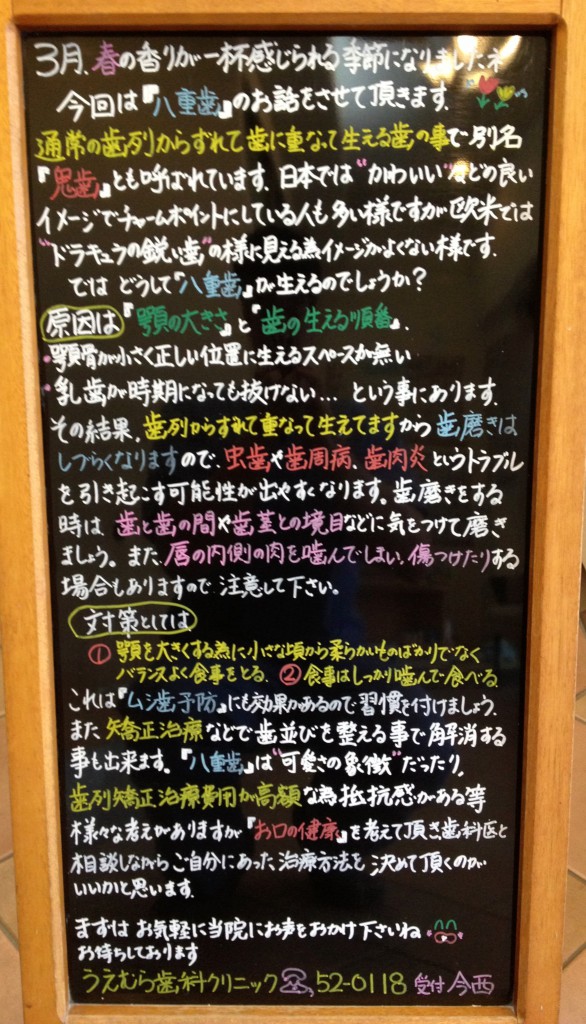 3月、春の香りが一杯感じられる季節になりましたネ
今回は『八重歯』のお話をさせて頂きます。
通常の歯列からずれて歯に重なって生える歯の事で別名
『鬼歯』とも呼ばれています。日本では"かわいい"などの良い
イメージでチャームポイントにしている人も多い様ですが欧米では
"ドラキュラの鋭い歯"の様に見える為イメージがよくない様です。
では どうして『八重歯』が生えるのでしょうか?
原因は『顎の大きさ』と『歯の生える順番』、
・顎骨が小さく正しい位置に生えるスペースが無い
・乳歯が時期になっても抜けない… という事にあります。
その結果、歯列からずれて重なって生えてますから歯磨きは
しづらくなりますので、虫歯や歯周病、歯肉炎というトラブル
を引き起こす可能性が出やすくなります。歯磨きをする
時は、歯と歯の間や歯茎との境目などに気をつけて磨き
ましょう。また、唇の内側の肉を噛んでしまい、傷つけたりする
場合もありますので注意して下さい。
対策としては
① 顎を大きくする為に小さな頃から柔らかいものばかりでなく
バランスよく食事をとる。 ② 食事はしっかり噛んで食べる
これは『ムシ歯予防』にも効果があるので習慣を付けましょう。
また 矯正治療などで歯並びを整える事で解消する
事も出来ます。『八重歯』は"可愛さの象徴"だったり、
歯列矯正治療費用が高額な為抵抗感がある等
様々な考えがありますが『お口の健康』を考えて頂き歯科医と
相談しながらご自分にあった治療方法を決めて頂くのが
いいかと思います。
まずは お気軽に当院にお声をおかけ下さいね
お待ちしております
うえむら歯科クリニック☎、52-0118 受付 今西